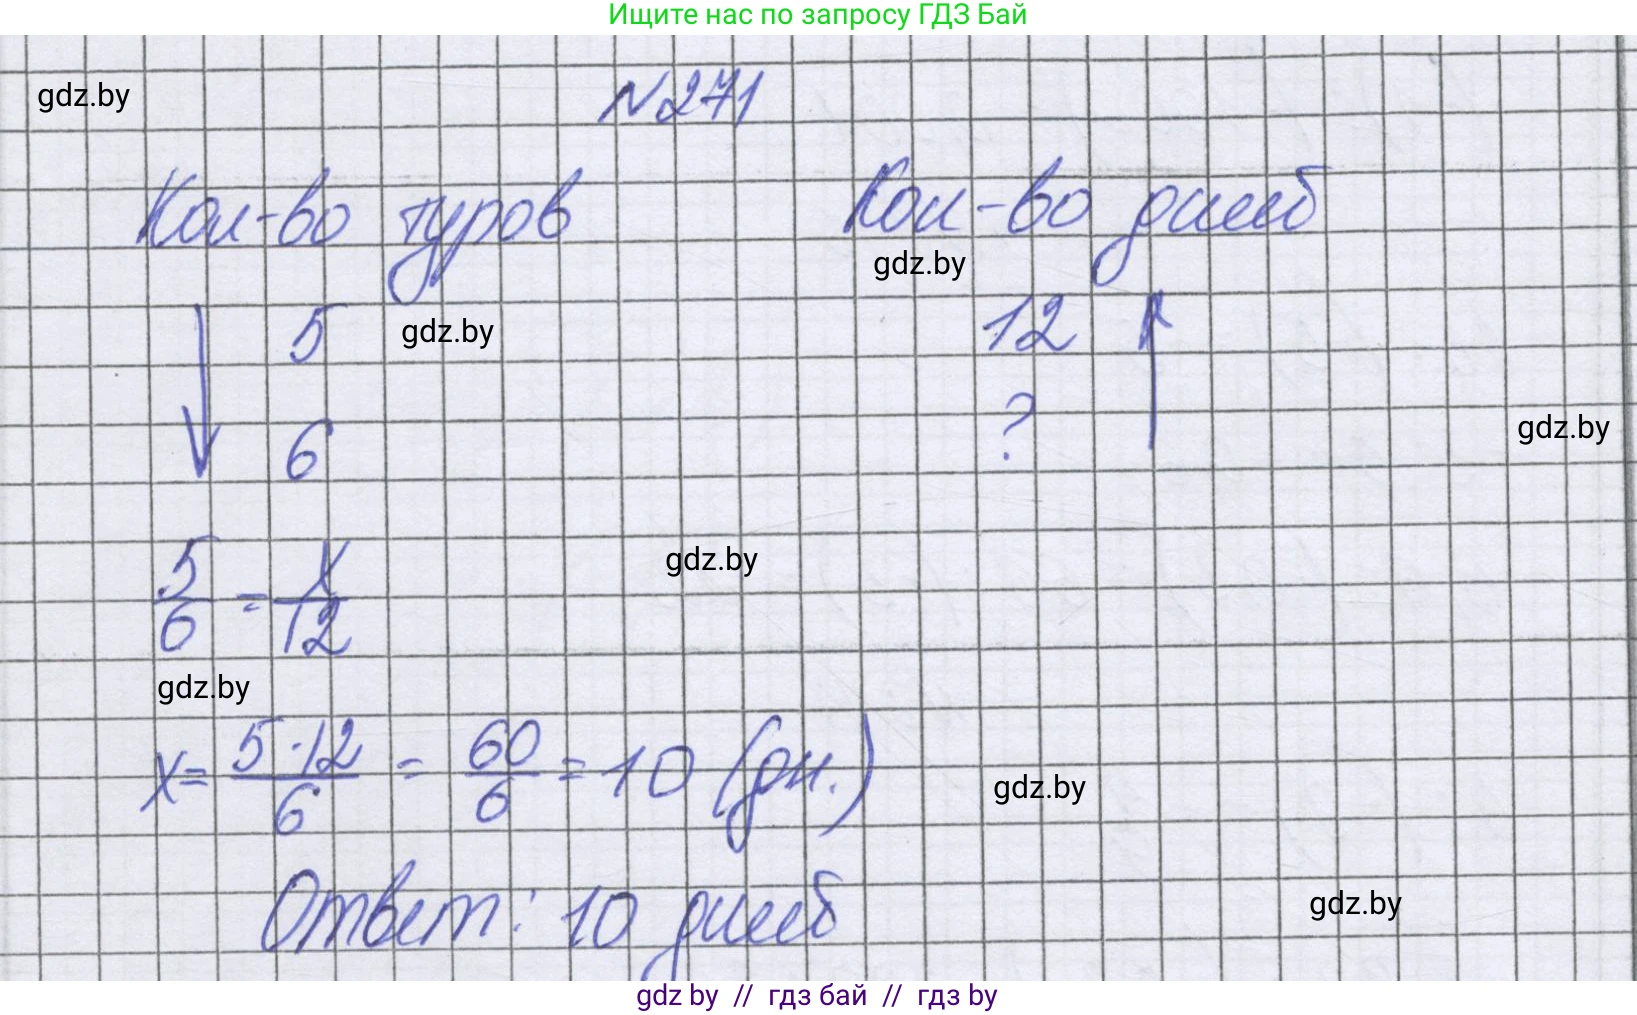 Ищите нас по запросу ГДЗ Бай
gdz.by
№271
Кол-во туров Кол-во дней
gdz.by
5 12
gdz.by
6 ?
gdz.by
5/6 = x/12
gdz.by
gdz.by
x = 5·12/6 = 60/6 = 10 (дн.)
gdz.by
Ответ: 10 дней
gdz.by
gdz by // гдз бай // гдз by